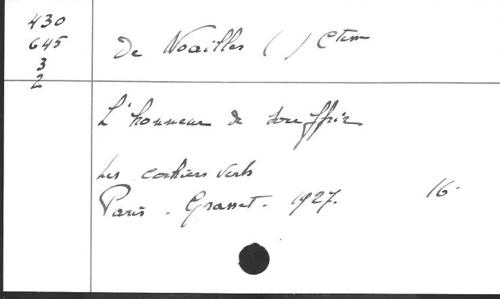 430
645
3
2
De Noailles ( ) Ctesse
L'honneur de souffrir
Les cahiers verts
Paris - Grasset - 1927. 16-